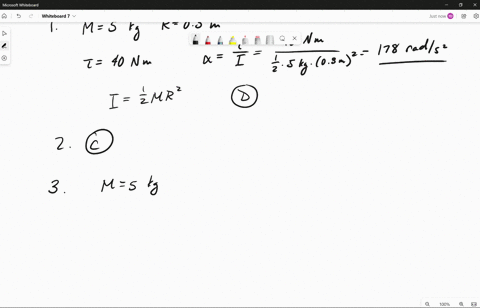 Microsoft Whiteboard
Whiteboard 7
Just now
1. M = 5 kg R = 0.3 m
τ = 40 Nm α = τ/I = Nm / (1/2 · 5 kg · (0.3 m)²) = 178 rad/s²
I = 1/2 MR² D
2. C
3. M = 5 kg
100%